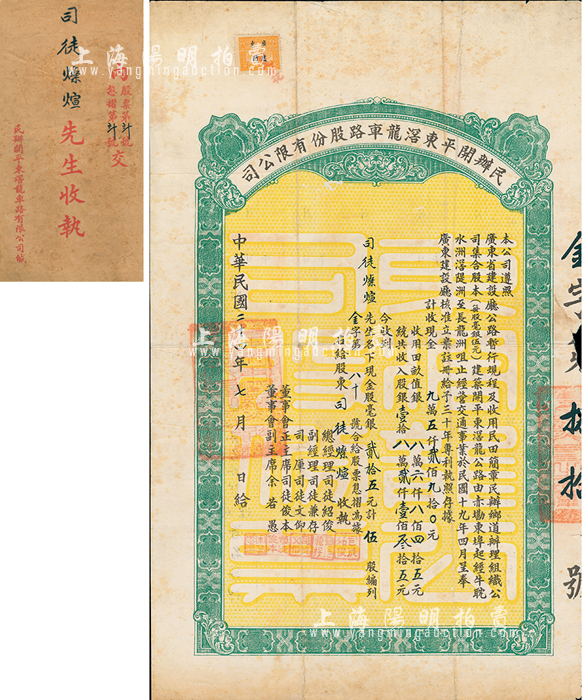 司徒燦煊先生收執
內股票第 號
息摺第 號
交
民辦開平東滘龍車路有限公司緘
民辦開平東滘龍車路股份有限公司
本公司遵照
廣東省建設廳公路暫行規程及收用民田簡章民辦鄉道辦理組織公
司集合股本(每股毫銀伍元)建築開平東滘龍公路由赤塘東埠起經牛眖
水洲滘堤洲至長龍洲咀止經營交通事業於民國十九年四月呈奉
廣東建設廳核准立案註冊給予三十年專利執照存據
計收現金 九萬五仟貳佰九拾○元
收用田畝值銀 八萬六仟八佰四拾五元
統共收入股銀壹拾八萬貳仟壹佰叁拾五元
今收到
司徒燦煊先生名下現金股毫銀貳拾五元計伍股編列
金字第八十號合給股票息摺為據
右給股東司徒燦煊收執
總經理司徒紹俊
副經理司徒兼存
司庫司徒文仰
董事會正主席司徒俊本
董事會副主席余若愚
中華民國二十四年七月 日給
號
上海陽明拍賣
www.yangmingauction.com
上海陽明拍賣
www.yangmingauction.com
上海陽明拍賣
www.yangmingauction.com